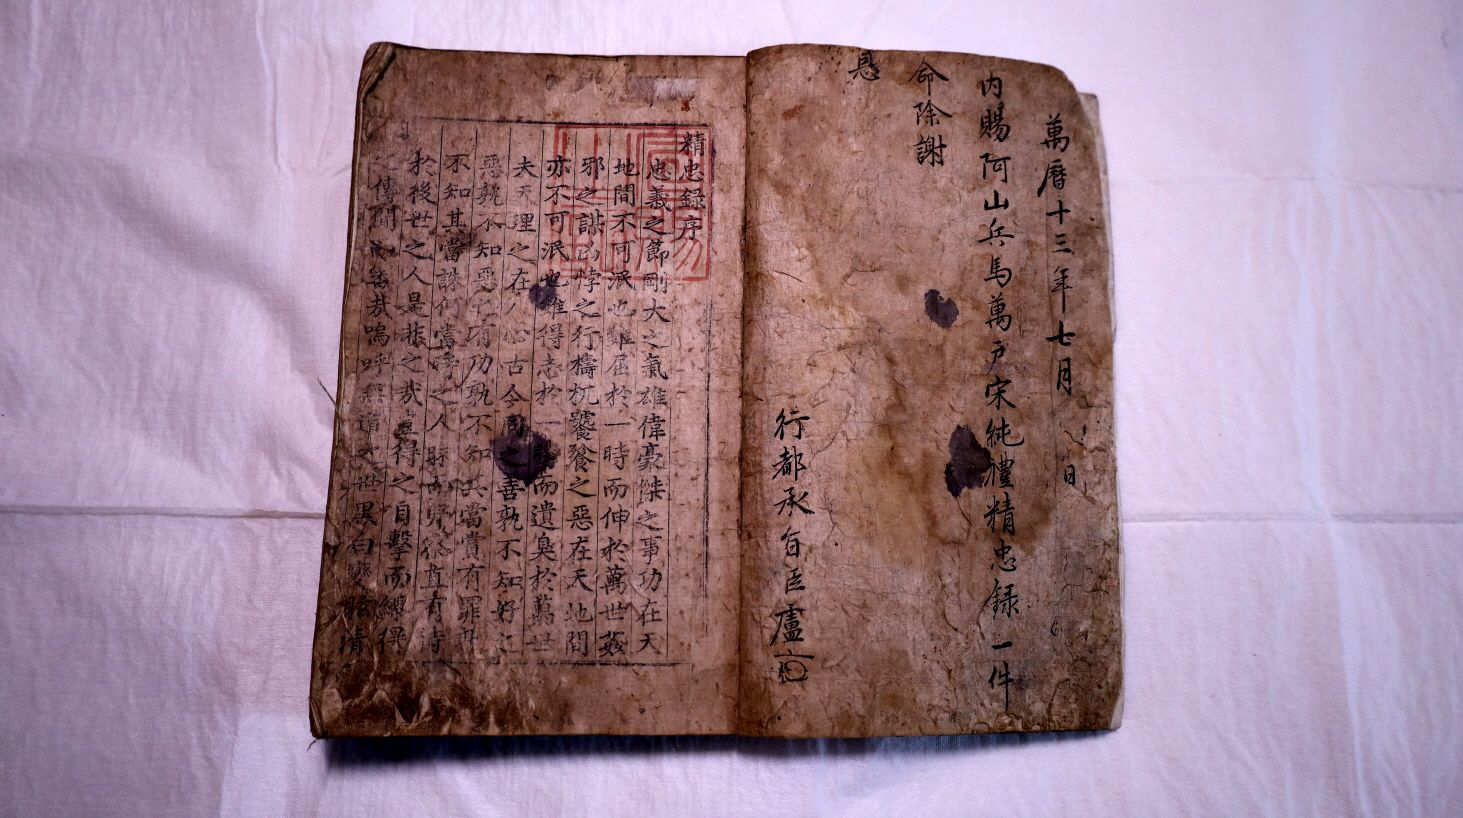 萬曆十三年七月 日
內賜阿山兵馬萬戶宋純禮精忠録一件
命除謝
恩
行都承旨臣盧
精忠録序
忠義之節剛大之氣雄偉豪傑之事功在天
地間不可泯也雖屈於一時而伸於萬世姦
邪之謀凶悖之行檮杌饕餮之惡在天地間
亦不可泯也雖得志於一時而遺臭於萬世
夫天理之在人心古今同之善孰不知好之
惡孰不知惡之有功孰不知其當賞有罪孰
不知其當誅何當時之人
於後世之人是非之哉無得之目擊而
之傳聞 哉嗚呼 世黑白變